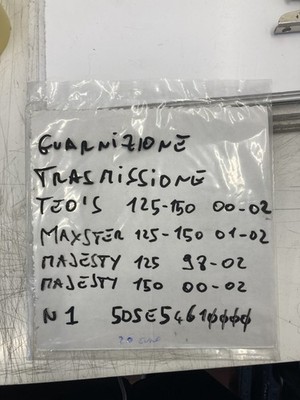 GUARNIZIONE
TRASMISSIONE
TEO'S 125-150 00-02
MAXSTER 125-150 01-02
MAJESTY 125 98-02
MAJESTY 150 00-02
N1 5DSE54610000